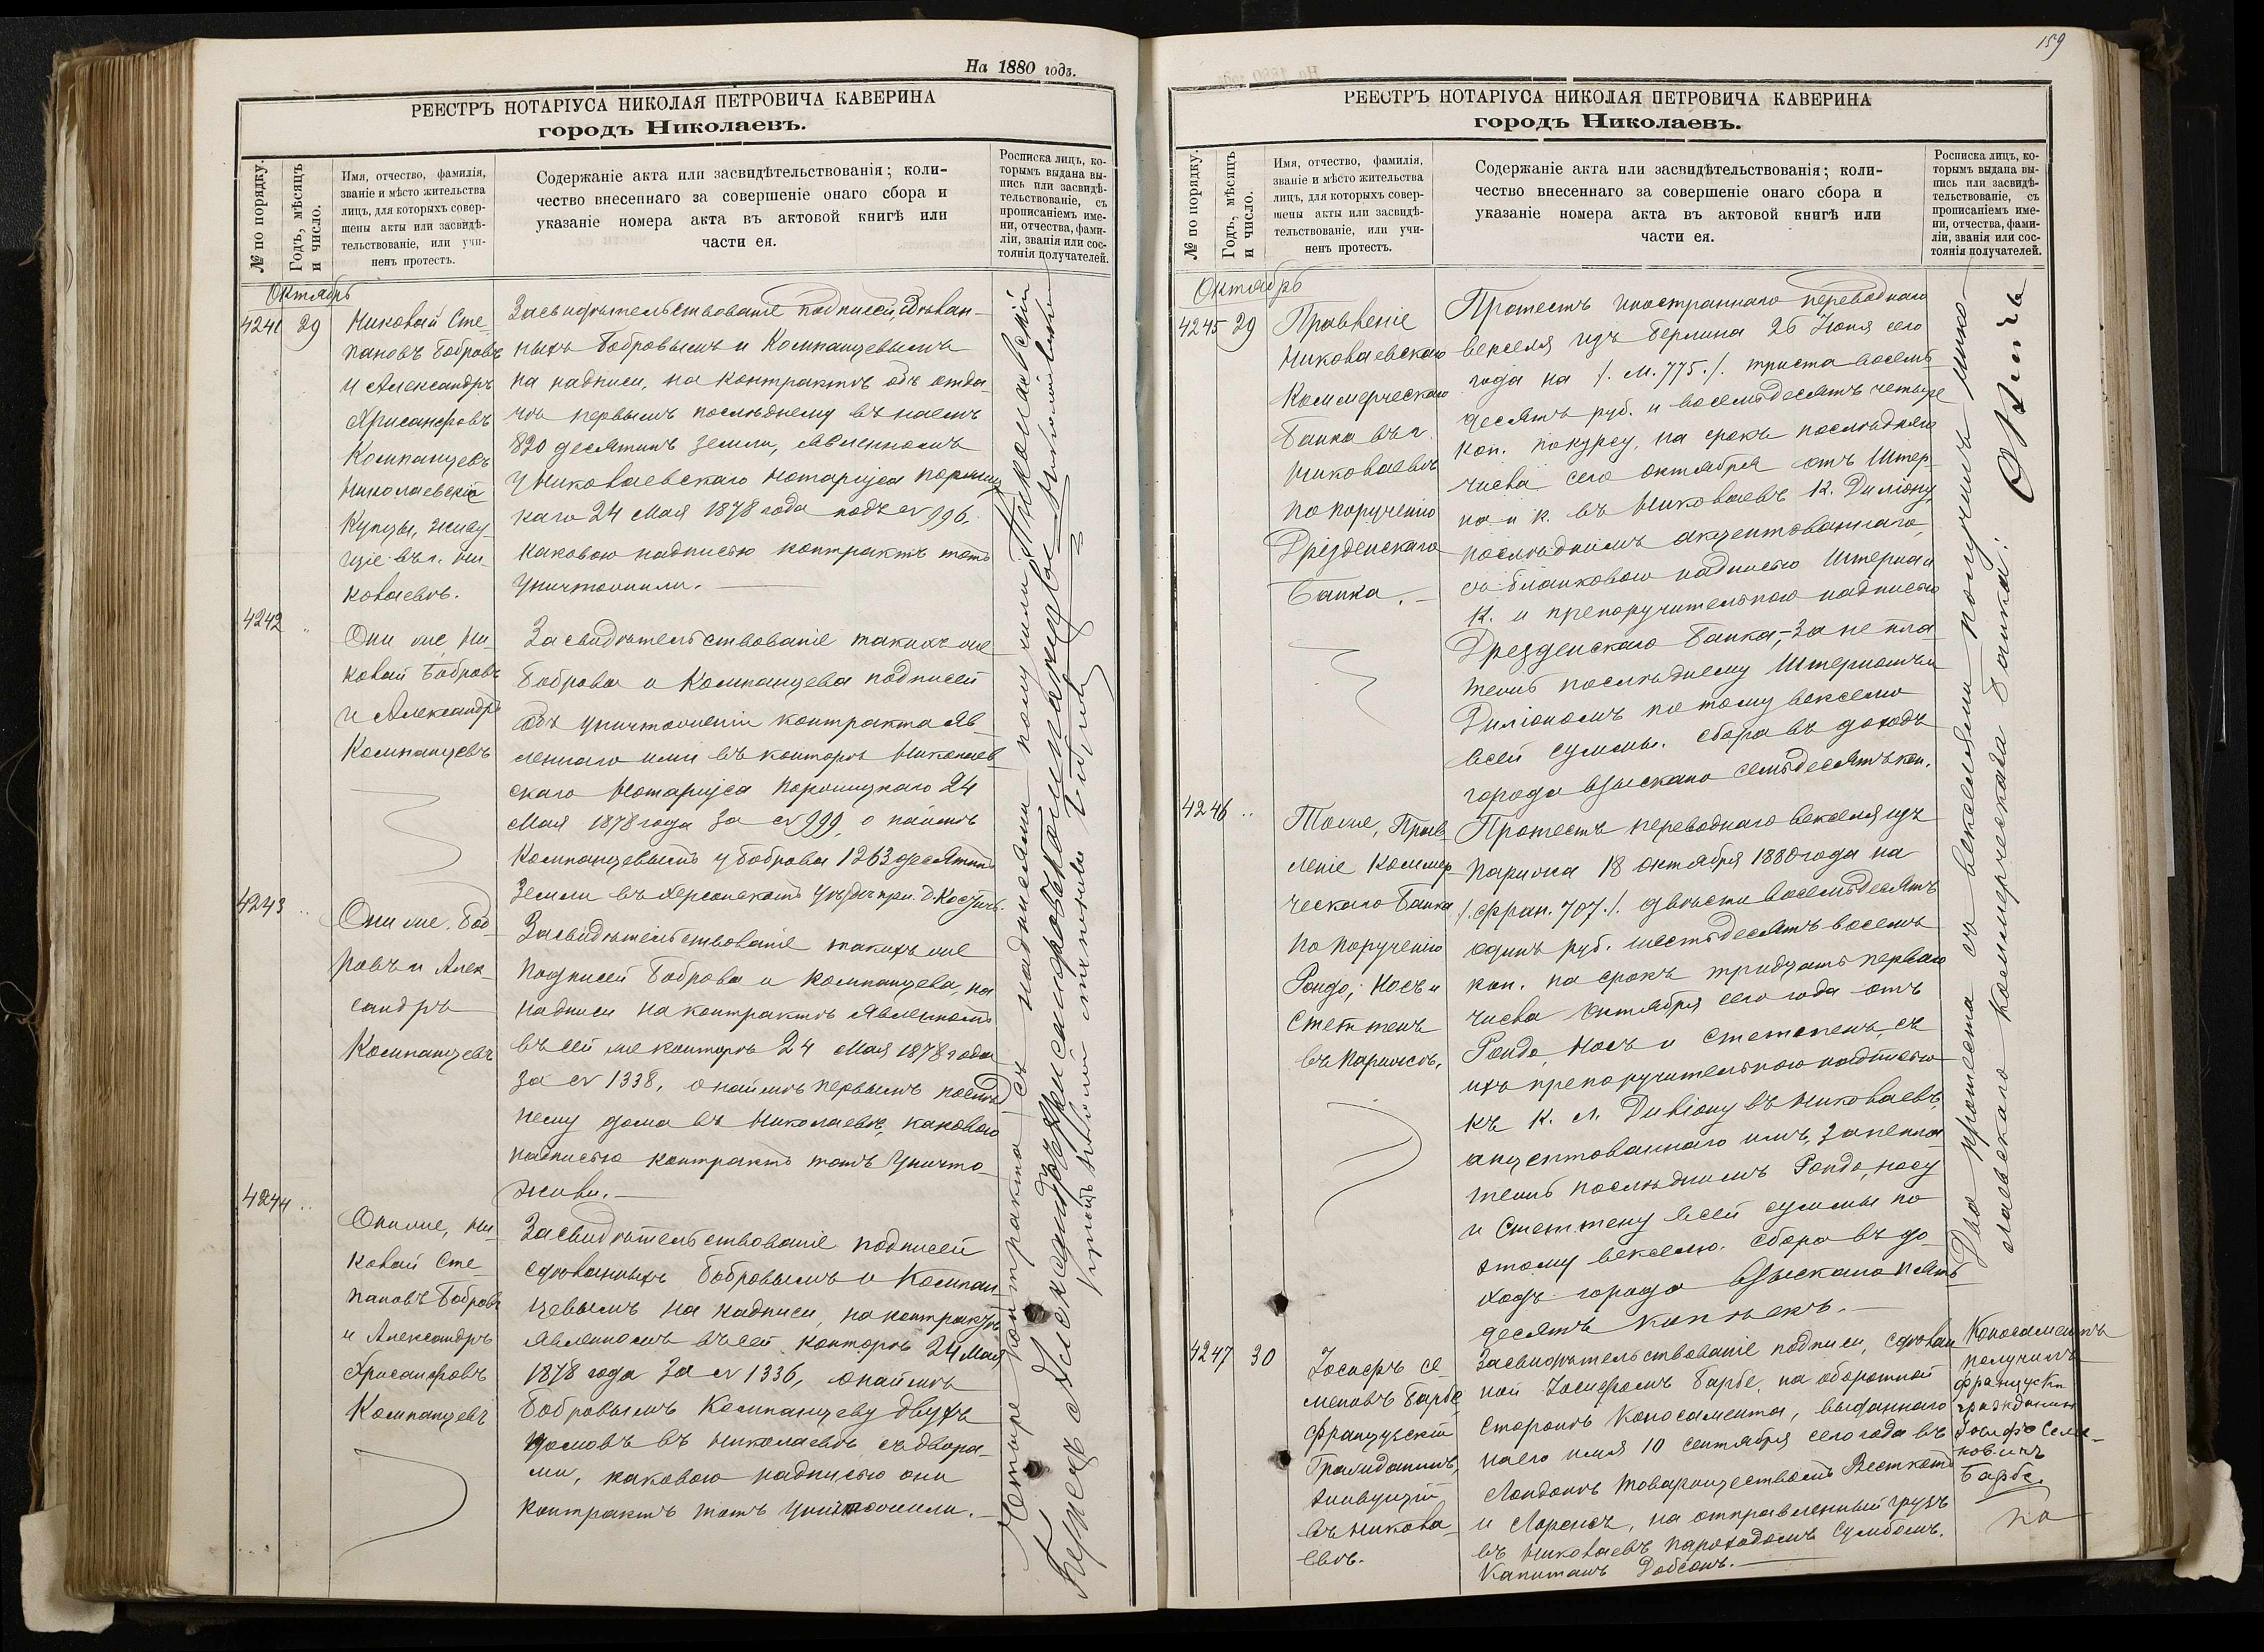 На 1880 годъ.
РЕЕСТРЪ НОТАРІУСА НИКОЛАЯ ПЕТРОВИЧА КАВЕРИНА
городъ Николаевъ.
№ по порядку.
Годъ, мѣсяцъ
и число.
Имя, отчество, фамилія,
званіе и мѣсто жительства
лицъ, для которыхъ совер-
шены акты или засвидѣ-
тельствованіе, или учи-
ненъ протестъ.
Содержаніе акта или засвидѣтельствованія; коли-
чество внесеннаго за совершеніе онаго сбора и
указаніе номера акта въ актовой книгѣ или
части ея.
Росписка лицъ, ко-
торымъ выдана вы-
пись или засвидѣ-
тельствованіе, съ
прописаніемъ име-
ни, отчества, фами-
ліи, званія или сос-
тоянія получателей.
Октябрь
4241 29
Николай Сте-
пановъ Бобровъ
и Александръ
Хрисанфовъ
Компанцевъ
Николаевскіе
Купцы, живу-
щіе въ г. Ни-
колаевѣ.
Засвидѣтельствованіе подписей, сдѣлан-
ныхъ Бобровымъ и Компанцевымъ
на надписи, на контрактѣ объ отда-
чѣ первымъ послѣднему въ наемъ
820 десятинъ земли, явленномъ
у Николаевскаго Нотаріуса
каго 24 Мая 1878 года подъ № 996.
каковою надписью контрактъ тотъ
уничтожили.
4242 "
Они же, Ни-
колай Бобровъ
и Александръ
Компанцевъ
Засвидѣтельствованіе такихъ же
Боброва и Компанцева подписей
объ уничтоженіи контракта яв-
леннаго ими въ конторѣ Николаев-
скаго Нотаріуса 24
Мая 1878 года за № 999, о наймѣ
Компанцевымъ у Боброва 1263 десятинъ
земли въ Херсонскомъ уѣздѣ при д.
4243 "
Они же, Боб-
ровъ и Алек-
сандръ
Компанцевъ
Засвидѣтельствованіе такихъ же
подписей Боброва и Компанцева, на
надписи на контрактѣ явленномъ
въ сей же конторѣ 24 Мая 1878 года
за № 1338, о наймѣ первымъ послѣд-
нему дома въ Николаевѣ, каковою
надписью контрактъ тотъ уничто-
жили.
4244 "
Они же, Ни-
колай Сте-
пановъ Бобровъ
и Александръ
Хрисанфовъ
Компанцевъ
Засвидѣтельствованіе подписей
сдѣланныхъ Бобровымъ и Компан-
цевымъ на надписи, на контрактѣ
явленномъ въ сей конторѣ 24 Мая
1878 года за № 1336, о наймѣ
Бобровымъ Компанцеву двухъ
домовъ въ Николаевѣ съ двора-
ми, каковою надписью они
контрактъ тотъ уничтожили.
Четыре контракта съ надписями получилъ Николаевскій
Купецъ Александръ Хрисанфовъ Компанцевъ
159
РЕЕСТРЪ НОТАРІУСА НИКОЛАЯ ПЕТРОВИЧА КАВЕРИНА
городъ Николаевъ.
№ по порядку.
Годъ, мѣсяцъ
и число.
Имя, отчество, фамилія,
званіе и мѣсто жительства
лицъ, для которыхъ совер-
шены акты или засвидѣ-
тельствованіе, или учи-
ненъ протестъ.
Содержаніе акта или засвидѣтельствованія; коли-
чество внесеннаго за совершеніе онаго сбора и
указаніе номера акта въ актовой книгѣ или
части ея.
Росписка лицъ, ко-
торымъ выдана вы-
пись или засвидѣ-
тельствованіе, съ
прописаніемъ име-
ни, отчества, фами-
ліи, званія или сос-
тоянія получателей.
Октябрь
4245 29
Правленіе
Николаевскаго
Коммерческаго
Банка въ г.
Николаевѣ
по порученію
Дрезденскаго
Банка.
Протестъ иностраннаго переводнаго
векселя изъ Берлина 26 Іюня сего
года на /. М. 775 ./. триста восемь-
десятъ руб. и восемьдесятъ четыре
коп. по курсу, на срокъ послѣдняго
числа сего октября отъ Штер-
на и К. въ Николаевъ К. Диліону,
послѣднимъ акцептованнаго,
съ бланковою надписью Штерна и
К. и препоручительною надписью
Дрезденскаго Банка,- за не пла-
тежъ послѣднему Штерномъ и
Диліономъ по тому векселю
всей суммы. Сбора въ доходъ
города взыскано семьдесятъ коп.
4246 "
Тоже, Прав-
леніе Коммер-
ческаго Банка
по порученію
Рондо, Носъ и
Стеттенъ
въ Парижѣ.
Протестъ переводнаго векселя изъ
Парижа 18 октября 1880 года на
/. фран. 707 ./. двѣсти восемьдесятъ
одинъ руб. шестьдесятъ восемь
коп. на срокъ тридцать перваго
числа октября сего года отъ
Рондо, Носъ и Стеттенъ, съ
ихъ препоручительною надписью
къ К. Л. Диліону въ Николаевъ,
акцептованнаго имъ, за непла-
тежъ послѣднимъ Рондо, Носу
и Стеттену всей суммы по
этому векселю. Сбора въ до-
ходъ города взыскано пять-
десятъ копѣекъ.
Два протеста съ векселями получилъ Нико-
лаевскаго Коммерческаго банка:
4247 30
Іосифъ Се-
меновъ Барбе
Французскій
Гражданинъ,
живущій
въ Никола-
евѣ.
Засвидѣтельствованіе подписи, сдѣлан-
ной Іосифомъ Барбе, на оборотной
сторонѣ Коносамента, выданнаго
на его имя 10 сентября сего года въ
Лондонѣ Товариществомъ Весткотъ
и Лоренсъ, на отправленный грузъ
въ Николаевъ пароходомъ Сумбомъ.
Капитанъ Добсонъ.
Коносаментъ
получилъ
француск
гражданинъ
Іосифъ Семе-
новичъ
Барбе